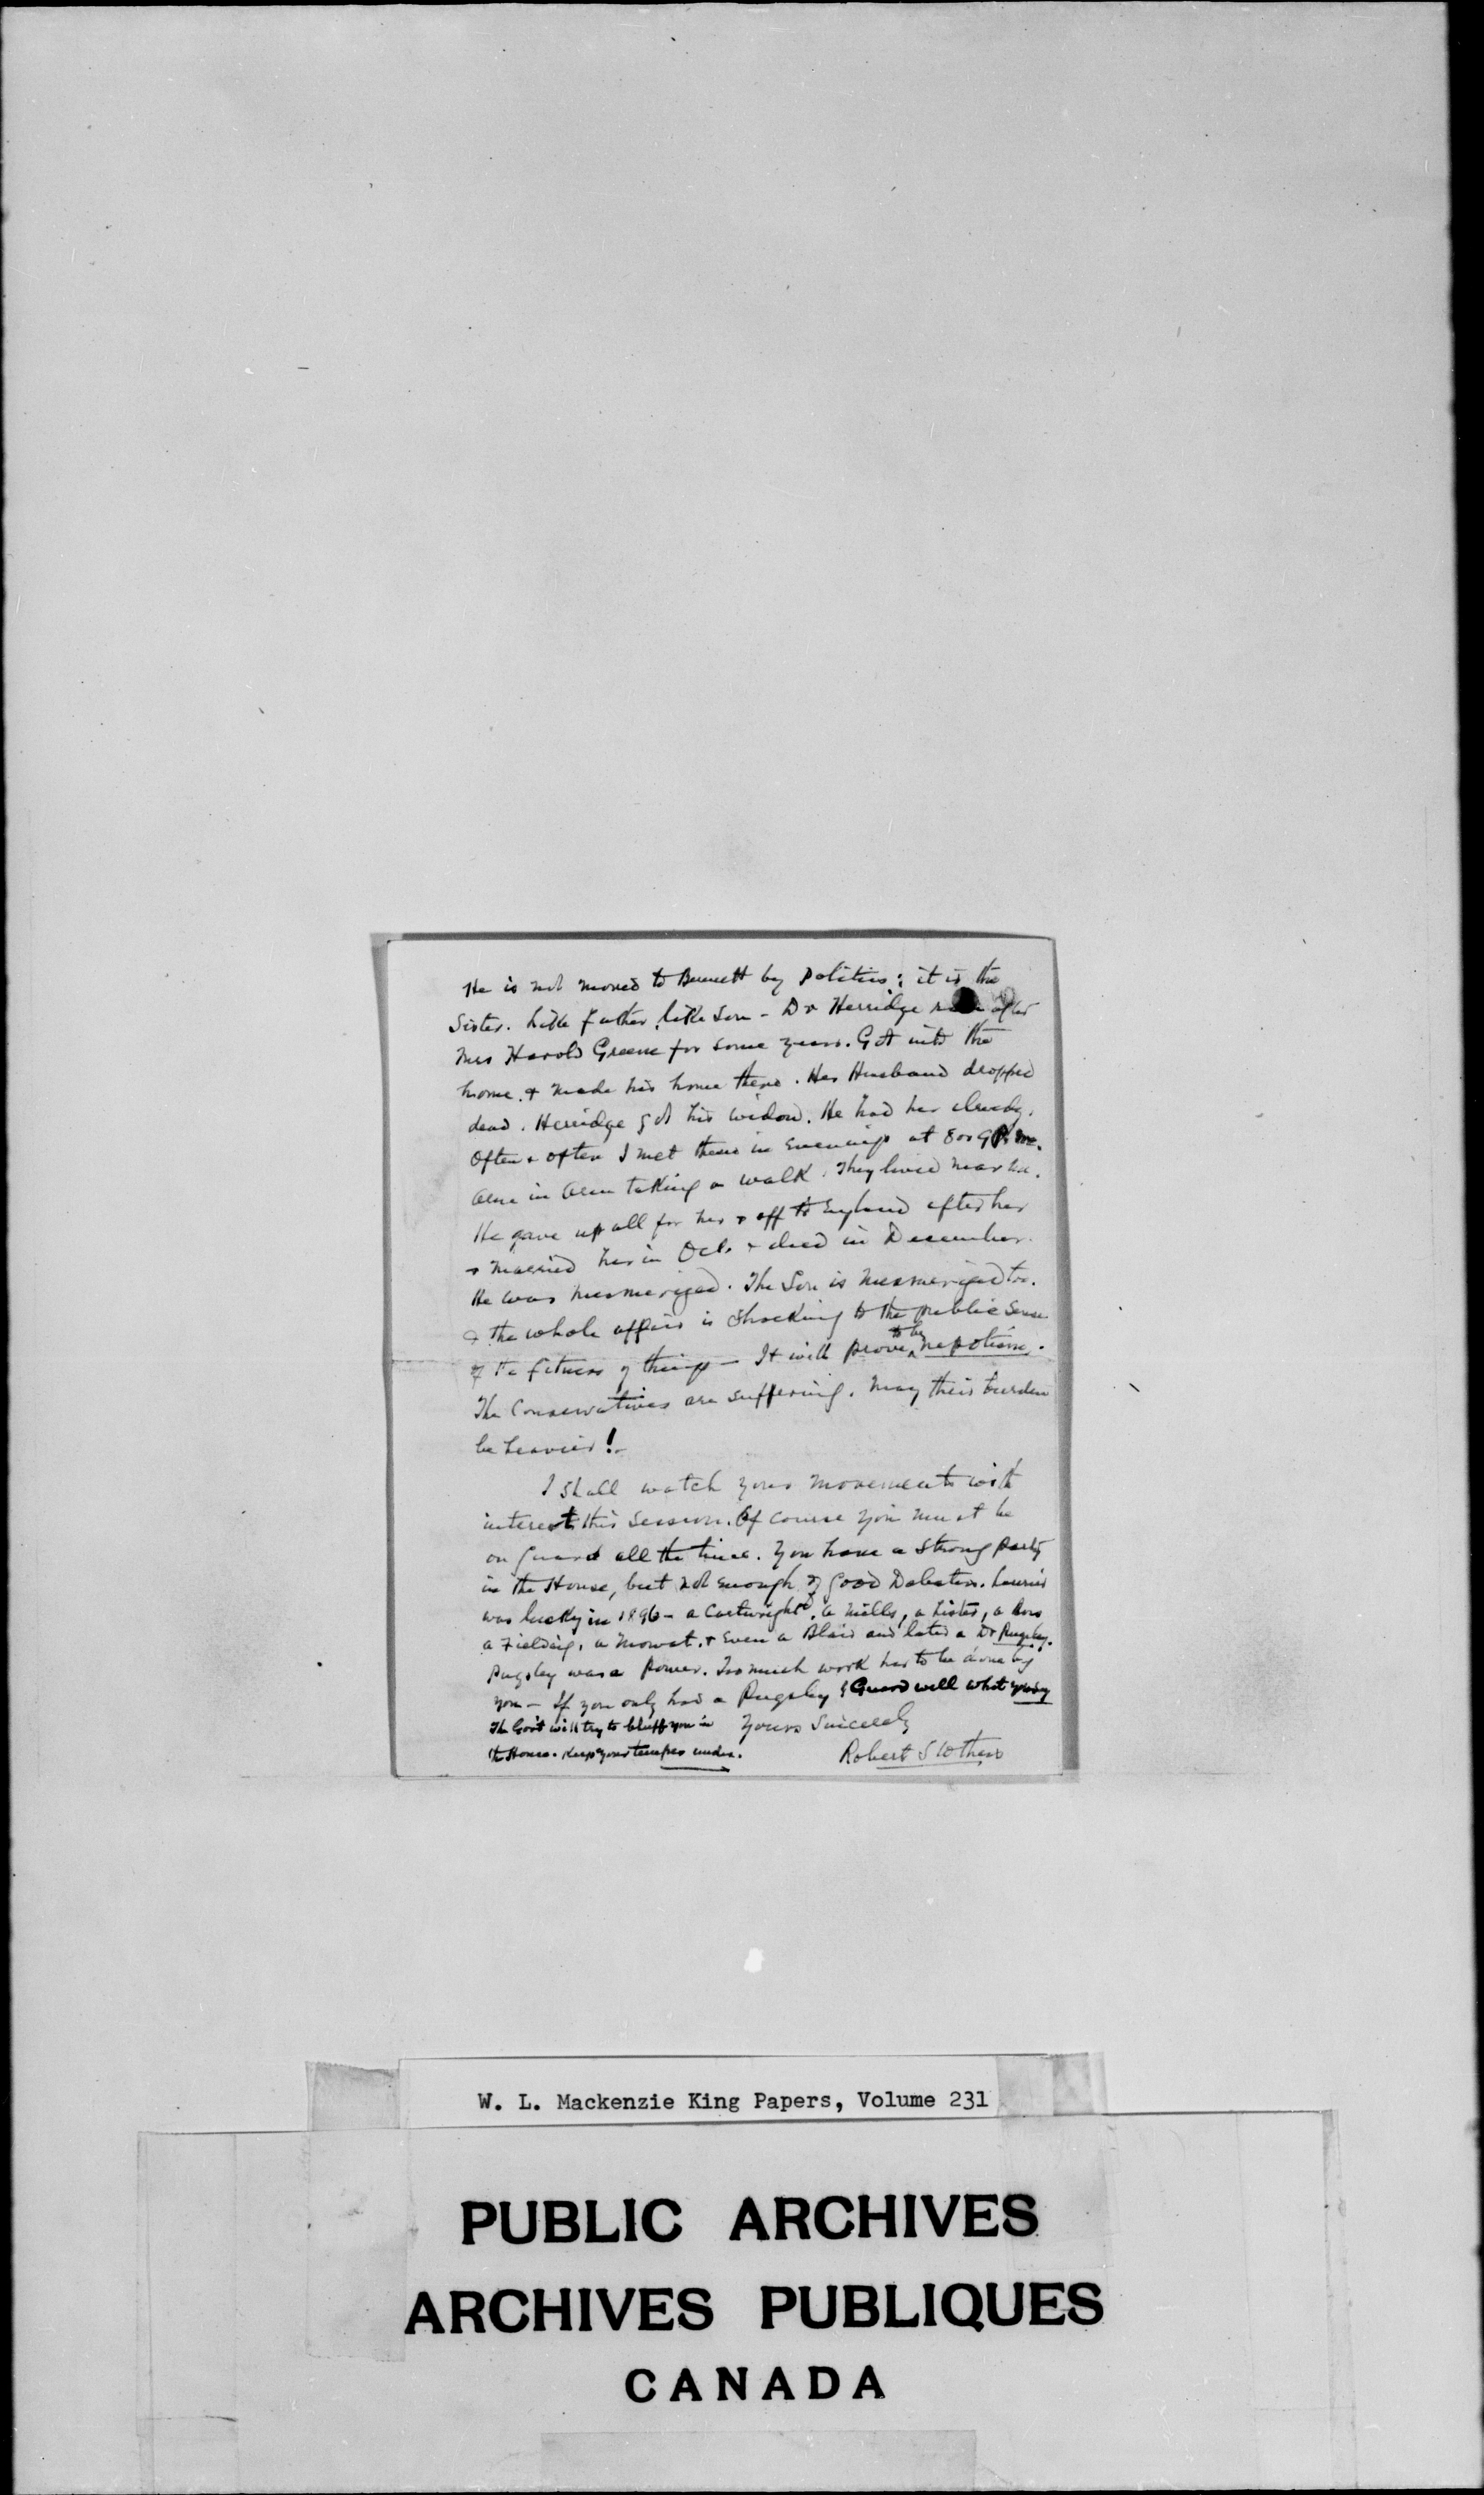 He is not moved to Bennett by politics; it is the
Sister. Like father, like Son - Dr Herridge ran after
Mrs Harold Greene for some years. Got into the
home. & made his home there. Her Husband dropped
dead. Herridge got his widow. He had her already.
Often & often I met them in evenings at 8 or 9 P.M.
arm in arm taking a walk. They lived near me.
He gave up all for her & off to England after her
& married her in Oct. & died in December.
He was mesmerized. The Son is mesmerized too.
& the whole affair is shocking to the public sense
of the fitness of things - It will prove to be nepotism.
The Conservatives are suffering. May their burden
be heavier!
I shall watch your movements with
interest this session. Of course you must be
on guard all the time. You have a strong party
in the House, but not enough of good Debaters. Laurier
was lucky in 1896 - a Cartwright, a Mills, a Lister, a
a Fielding, a Mowat, & even a Blair and later a Dr Pugsley.
Pugsley was a power. Too much work has to be done by
you - If you only had a Pugsley! Guard well what you say
The Gov't will try to bluff you in
the House. Keep your temper under.
Yours Sincerely
Robert Stothers
W. L. Mackenzie King Papers, Volume 231
PUBLIC ARCHIVES
ARCHIVES PUBLIQUES
CANADA